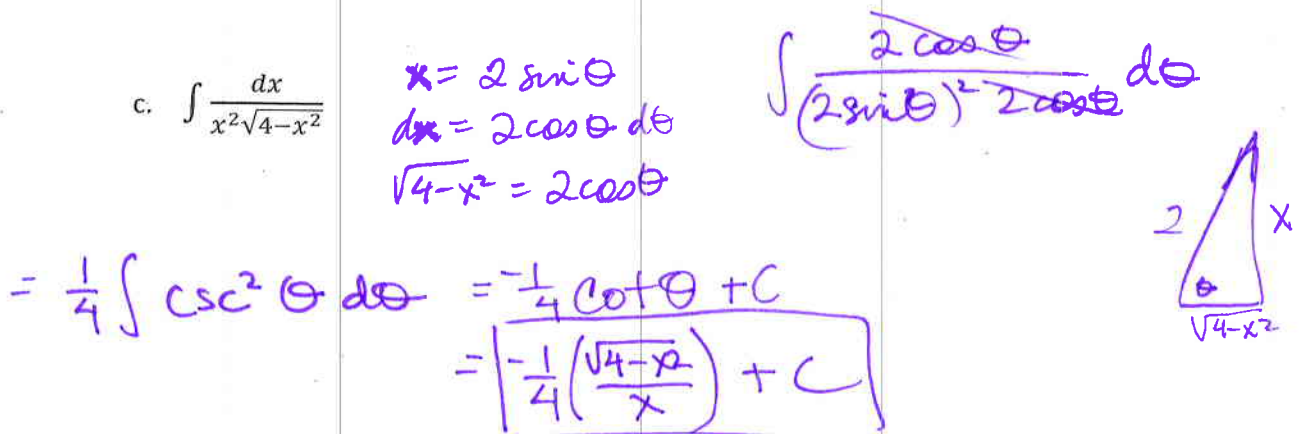 c. ∫ dx / (x²√(4−x²))
x = 2 sin θ
dx = 2 cos θ dθ
√(4−x²) = 2 cos θ
∫ 2 cos θ / ((2 sin θ)² 2 cos θ) dθ
2
x
θ
√(4−x²)
= 1/4 ∫ csc² θ dθ = −1/4 cot θ + C
= −1/4 (√(4−x²) / x) + C